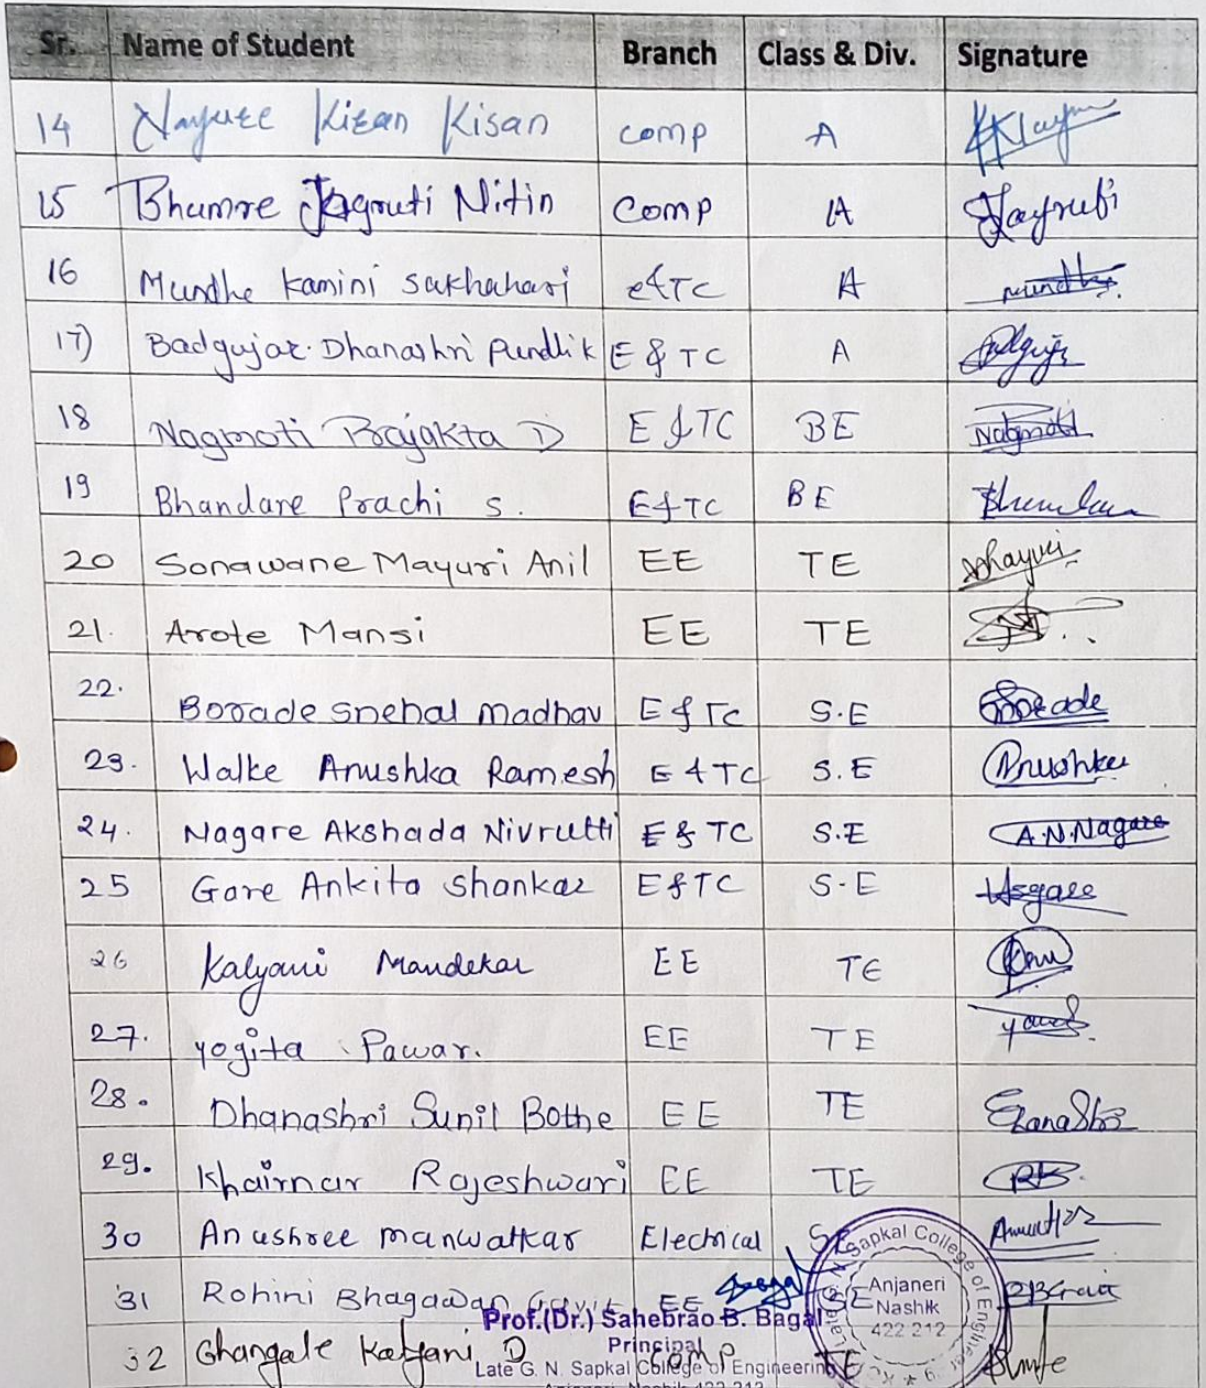 Sr. Name of Student Branch Class & Div. Signature
14 Nayure Kiran Kisan comp A
15 Bhamre Jagruti Nitin Comp A Jagruti
16 Mundhe kamini sakhahari e&TC A Mundhe
17) Badgujar. Dhanashri Pundlik E & TC A
18 Nagmoti Prajakta D E & TC BE Nagmoti
19 Bhandare Prachi S. E & TC BE
20 Sonawane Mayuri Anil EE TE Mayuri
21. Arote Mansi EE TE
22. Borade snehal madhav E & TC S.E Borade
23. Walke Anushka Ramesh E & TC S.E Anushka
24. Nagare Akshada Nivrutti E & TC S.E A.N.Nagare
25 Gare Ankita Shankar E & TC S-E
26 Kalyani Mandekar EE TE
27. yogita Pawar. EE TE
28. Dhanashri Sunil Bothe EE TE Dhanashri
29. Khairnar Rajeshwari EE TE RK
30 Anushree manwatkar Electrical SE
31 Rohini Bhagawan Gavit EE SE RBGavit
Prof.(Dr.) Sahebrao B. Bagal
Principal
32 Ghangale Kalyani D comp TE
Late G. N. Sapkal College of Engineering
Anjaneri, Nashik 422 212
Sapkal College of Engineer
Anjaneri
Nashik
422 212